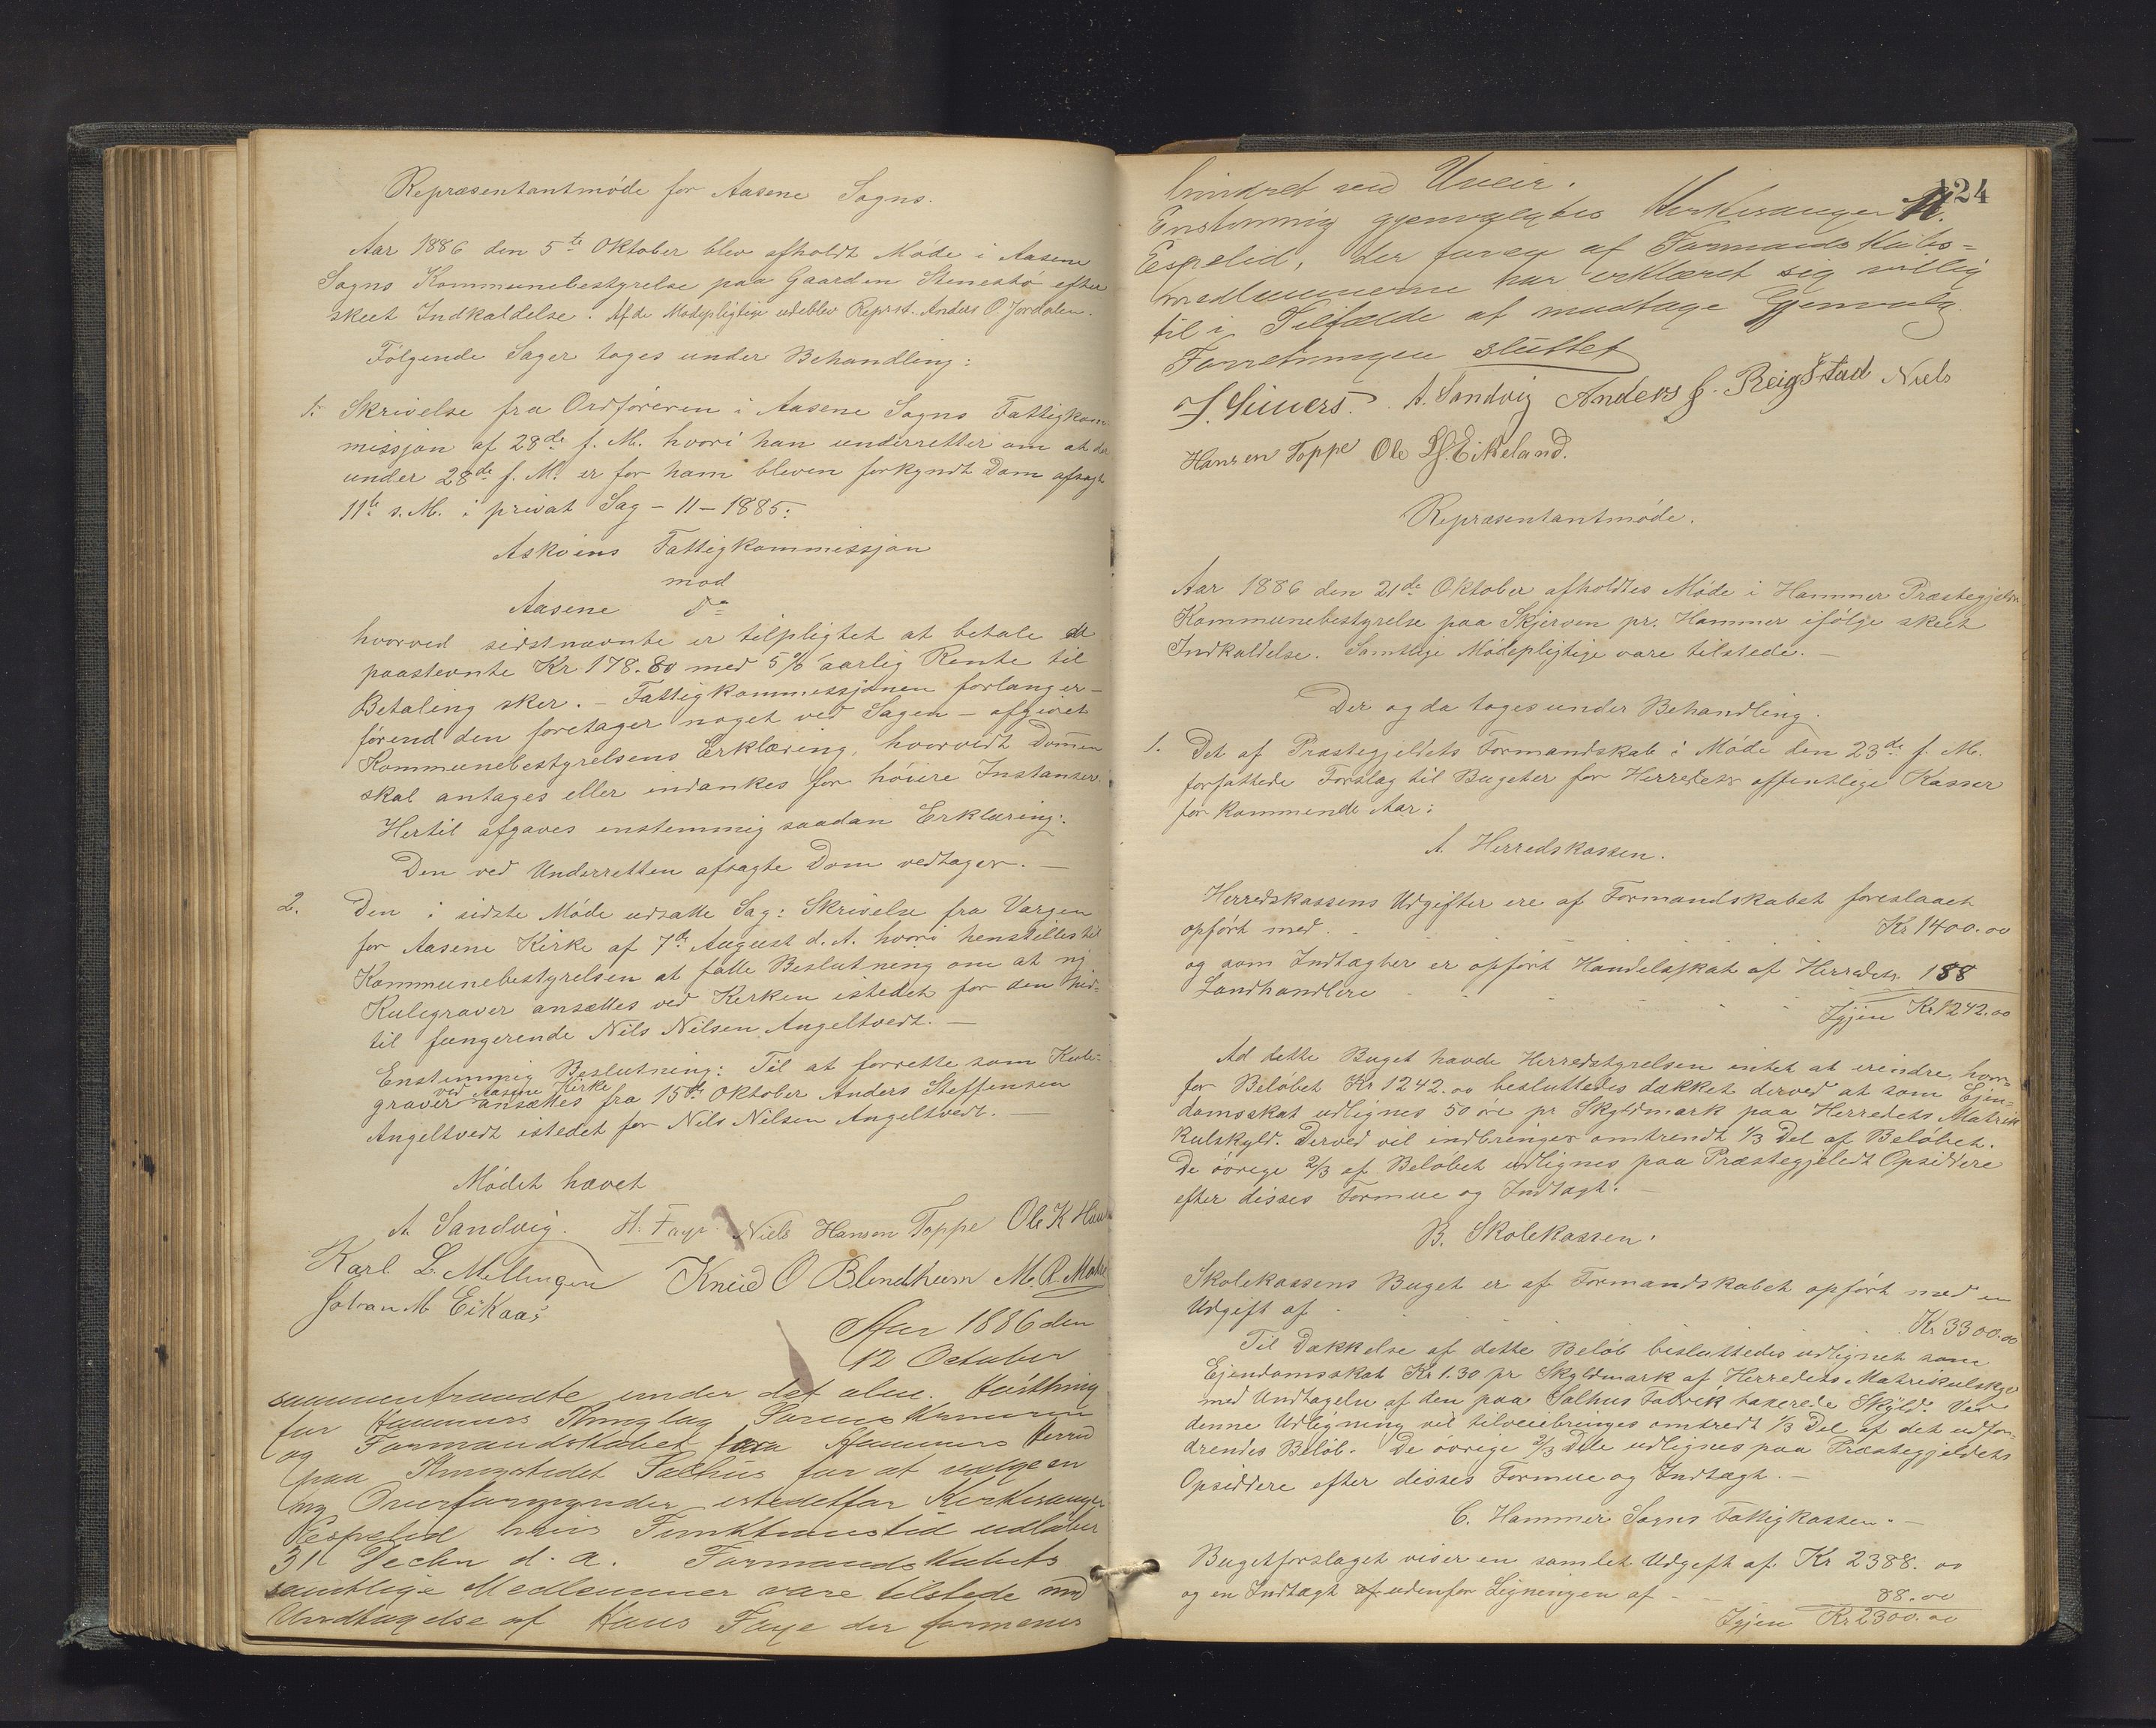 Repræsentantmöde for Aasene Sogns.
Aar 1886 den 5te Oktober blev afholdt Möde i Aasene
Sogns Kommunebestyrelse paa Gaarden Stenestö efter
skeet Indkaldelse. Af de Mödepligtige udeblev Reprst. Anders O. Jordalen.
Følgende Sager toges under Behandling:
1. Skrivelse fra Ordföreren i Aasene Sogns Fattigkom
missjon af 28de f. M. hvori han underretter om at der
under 28de f. M. er for ham bleven forkyndt Dom afsagt
11te s. M. i privat Sag - 11 - 1885:
Asköens Fattigkommissjon
mod
Aasene do
hvorved sidstnævnte er tilpligtet at betale de
paastevnte Kr 178.80 med 5% aarlig Rente til
Betaling sker. - Fattigkommissjonen forlanger -
förend den foretager noget ved Sagen - afgivet
Kommunebestyrelsens Erklæring, hvorvidt Dommen
skal antages eller indankes for höiere Instanser.
Hertil afgaves enstemmig saadan Erklæring:
Den ved Underretten afsagte Dom vedtages. -
2. Den i sidste Möde udsatte Sag: Skrivelse fra Vergen
for Aasene Kirke af 7de August d. A. hvori henstilles til
Kommunebestyrelsen at fatte Beslutning om at ny
Kulegraver ansættes ved Kirken istedet for den hid-
til fungerende Nils Nilsen Angeltvedt. -
Enstemmig Beslutning: Til at forrette som Kule-
ved Aasene Kirke
graver ansættes fra 15de Oktober Anders Steffensen
Angeltvedt istedet for Nils Nilsen Angeltvedt. -
Mödet hævet
A. Sandvig. H. Faye Niels Hansen Toppe Ole K
Karl L. Mellingen Knud O Blindheim M. R.
Johan M Eikaas
Aar 1886 den
12 October
sammentraadte under det alm. Høstthing
for Hammers Thinglag
og Formandskabet for Hammers Herred
paa Thingstedet Salhus for at vælge en
ny Overformynder istedetfor Kirkesanger
Espelid hvis Funktionstid udløber
31 Decbr d. A. Formandskabets
samtlige Medlemmer vare tilstede med
Undtagelse af Hans Faye der formenes
124
hindret ved Uveir.
Enstemmig gjenvalgtes Kirkesanger N.
Espelid, der forem af Formandskabs-
medlemmerne har erklæret sig villig
til i Tilfælde at modtage Gjenvalg.
Forretningen sluttet
A. Sandvig Anders J. Reigstad Niels
Hansen Toppe Ole Eikeland.
Repræsentantmöde.
Aar 1886 den 21de Oktober afholdtes Möde i Hammer Præstegjelds
Kommunebestyrelse paa Skjerven pr. Hammer ifölge skeet
Indkaldelse. Samtlige Mödepligtige vare tilstede. -
Der og da toges under Behandling.
1. Det af Præstegjeldets Formandskab i Möde den 23de f. M.
forfattede Forslag til Bugeter for Herredets offentlige Kasser
for kommende Aar:
A. Herredskassen.
Herredskassens Udgifter ere af Formandskabet foreslaaet
opfört med . . . Kr 1400.00
og som Indtægter er opfört Handelsskat af Herredets 188
Landhandlere . . .
Igjen Kr 1242.00
Ad dette Buget havde Herredstyrelsen intet at erindre, hvor-
for Belöbet Kr 1242.00 besluttedes dækket derved at som Ejen-
domsskat udlignes 50 öre pr Skyldmark paa Herredets Matrik
kulskyld. Derved vil indbringes omtrendt 1/3 Del af Belöbet.
De övrige 2/3 af Belöbet udlignes paa Præstegjeldt Opsiddere
efter disses Formue og Indtægt. -
B. Skolekassen.
Skolekassens Buget er af Formandskabet opfört med en
Udgift af . . . Kr 3300.00
Til Dækkelse af dette Belöb besluttedes udlignet som
Ejendomsskat Kr 1.30 pr Skyldmark af Herredets Matrikulskyld
med Undtagelse af den paa Salhus Fabrik taxerede Skyld. Ved
denne Udligning vil tilveiebringes omtredt 1/3 Del af det udfor-
drendes Belöb. De övrige 2/3 Dele udlignes paa Præstegjeldets
Opsiddere efter disses Formue og Indtægt. -
C. Hammer Sogns Fattigkassen. -
Bugetforslaget viser en samlet Udgift af Kr 2388.00
og en Indtægt af udenfor Ligningen af - 88.00
Igjen Kr. 2300.00